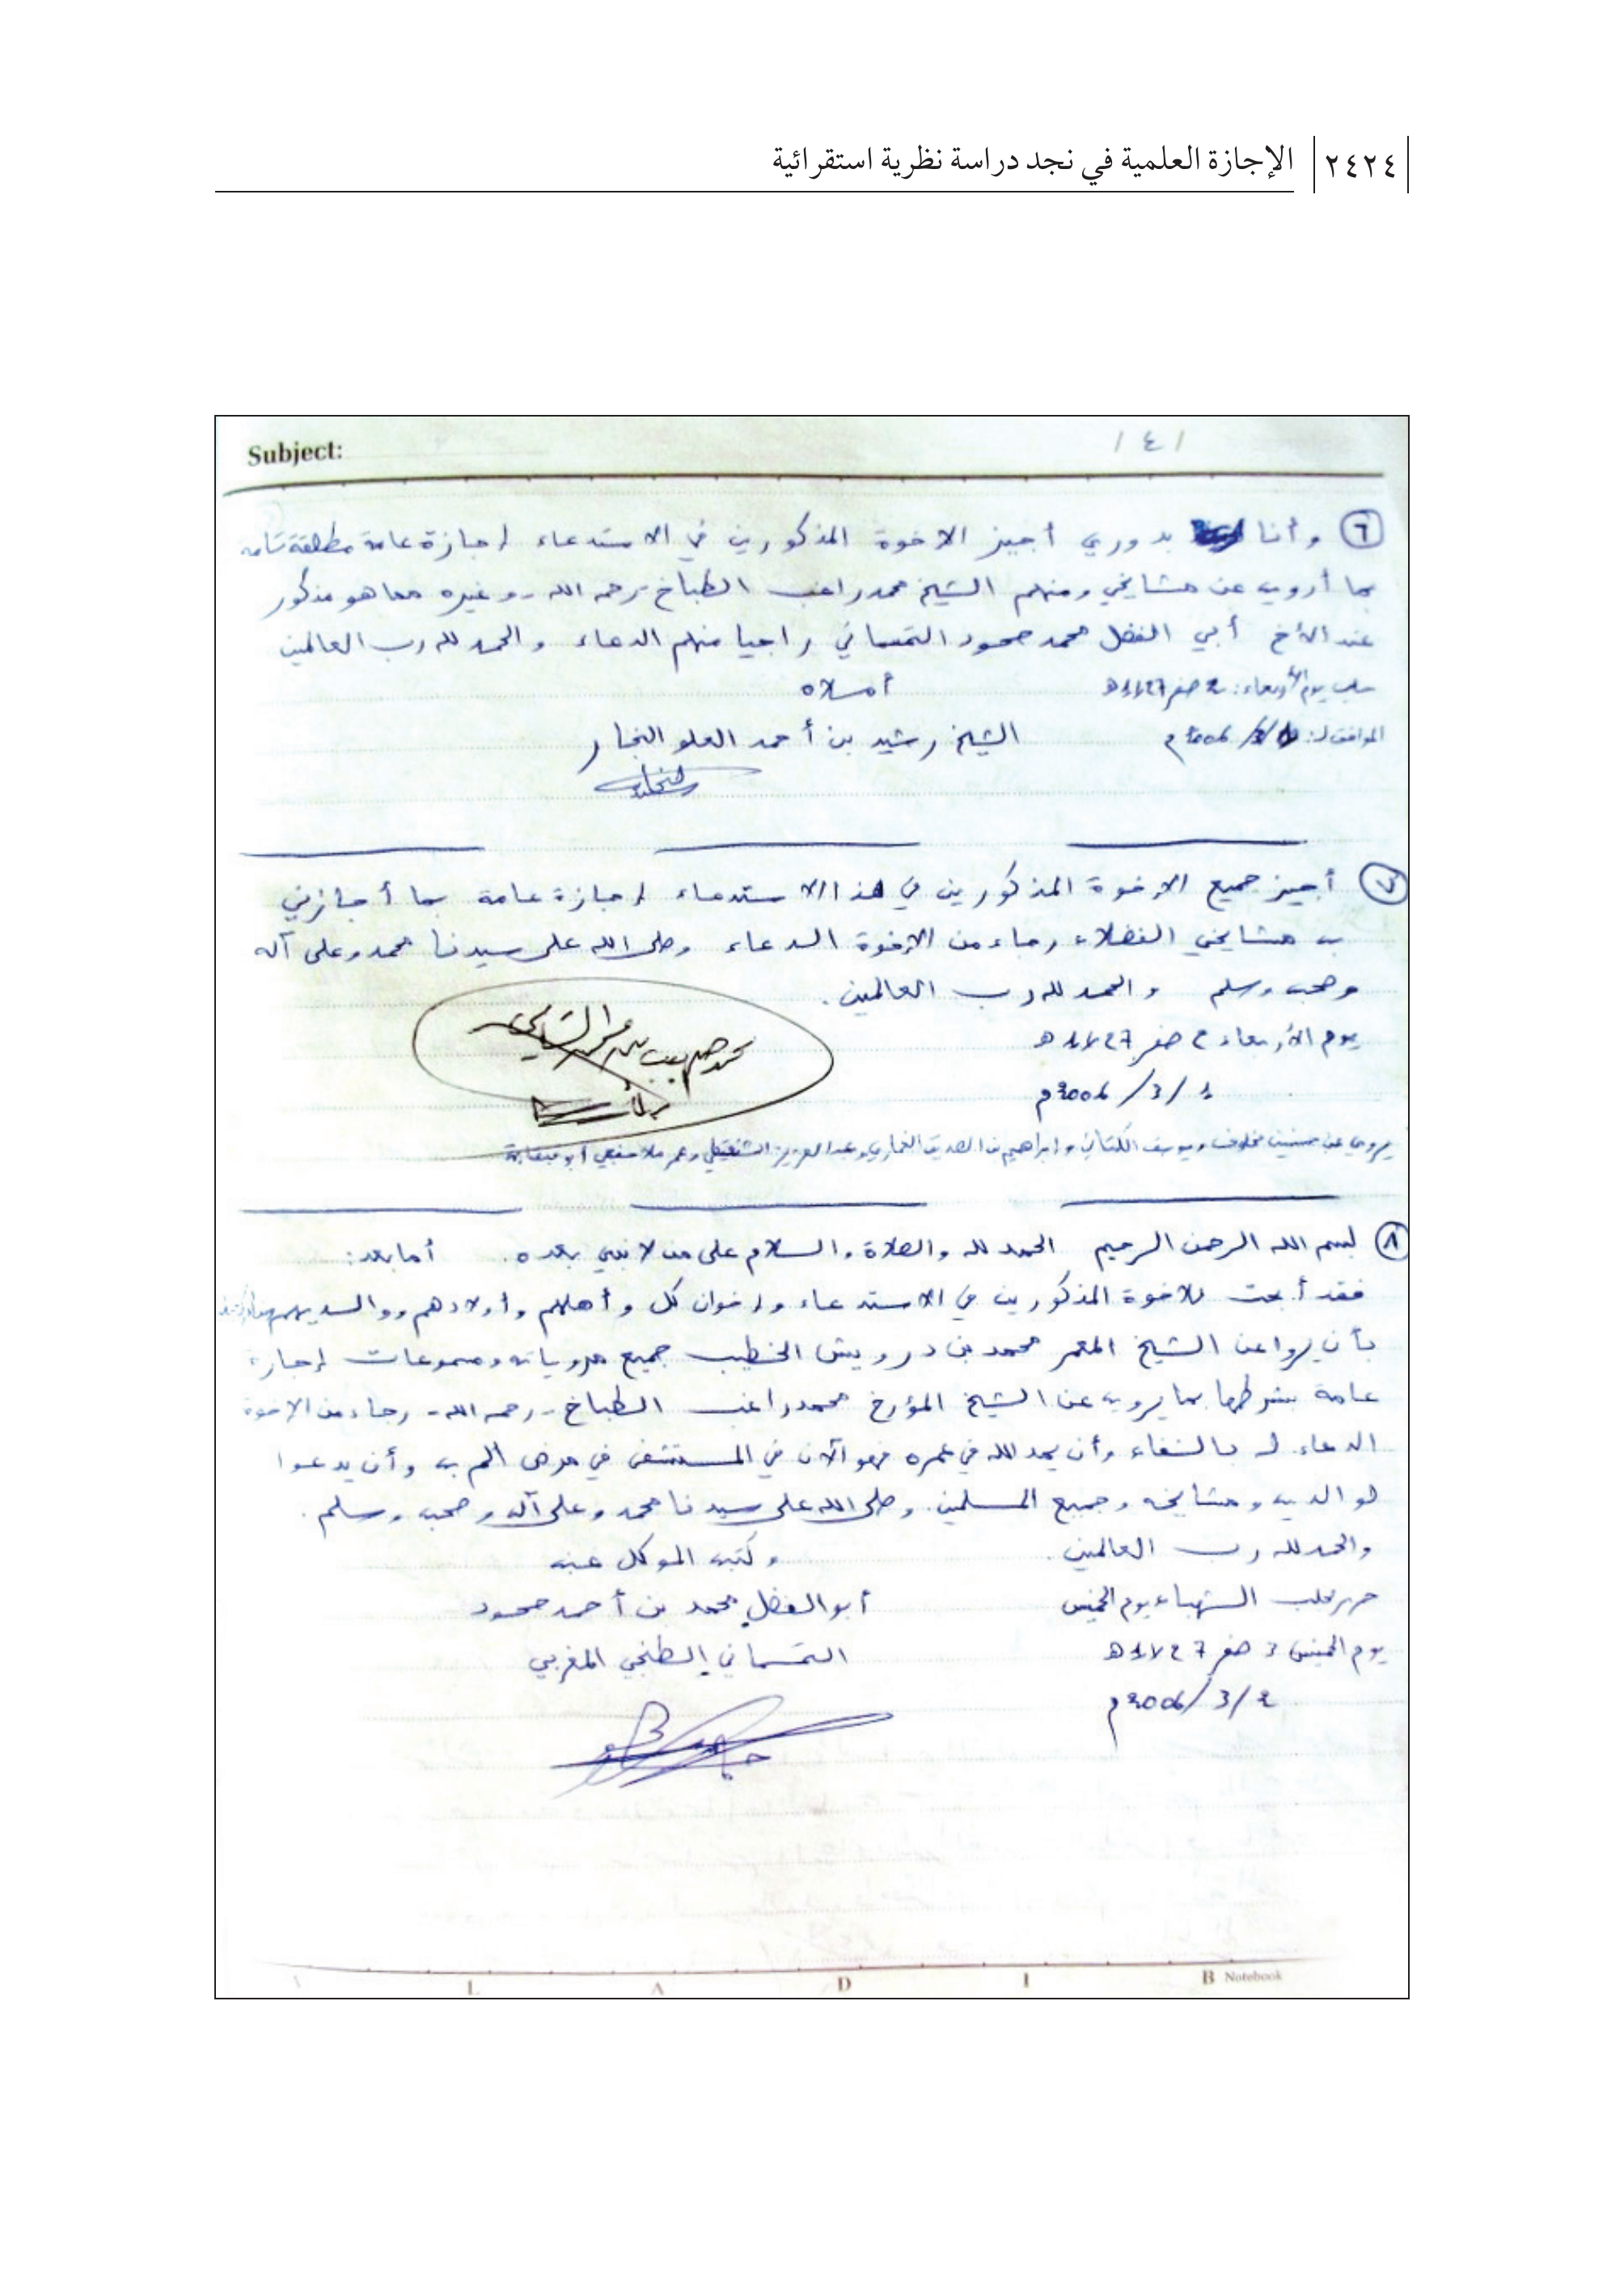 ٢٤٢٤ الإجازة العلمية في نجد دراسة نظرية استقرائية
Subject: ١٤١
٦ وأنا بدوري أجيز الاخوة المذكورين في الاستدعاء إجازة عامة مطلقة تامة
بما أرويه عن مشايخي ومنهم الشيخ محمد راغب الطباخ - رحمه الله - وغيره مما هو مذكور
عند الأخ أبي الفضل محمد محمود التمسماني راجيا منهم الدعاء والحمد لله رب العالمين
حلب يوم الأربعاء: 2 صفر 1427هـ أملاه
الموافق لـ: 1/3/2006م الشيخ رشيد بن أحمد العلو النجار
٧ أجيز جميع الإخوة المذكورين في هذا الاستدعاء إجازة عامة بما أجازني
به مشايخي الفضلاء رجاء من الإخوة الدعاء وصلى الله على سيدنا محمد وعلى آله
وصحبه وسلم والحمد لله رب العالمين.
يوم الأربعاء 2 صفر 1427هـ
1/3/2006م
محمد صهيب بن محمد الشامي
يروي عن حسنين مخلوف ويوسف الكتاني وإبراهيم بن الصديق الغماري وعبد العزيز الشنقيطي وعمر ملا
٨ بسم الله الرحمن الرحيم الحمد لله والصلاة والسلام على من لا نبي بعده. أما بعد:
فقد أبحت للاخوة المذكورين في الاستدعاء وإخوان كل وأهلهم وأولادهم ووالديهم
بأن يروا عن الشيخ المعمر محمد بن درويش الخطيب جميع مروياته ومسموعاته إجازة
عامة بشرطها بما يرويه عن الشيخ المؤرخ محمد راغب الطباخ - رحمه الله - رجاء من الاخوة
الدعاء له بالشفاء وأن يمد الله في عمره فهو الآن في المستشفى في مرض وأن يدعوا
لوالديه ومشايخه وجميع المسلمين. وصلى الله على سيدنا محمد وعلى آله وصحبه وسلم.
والحمد لله رب العالمين. وكتبه الموكل عنه
حرر بحلب الشهباء يوم الخميس أبو الفضل محمد بن أحمد محمود
يوم الخميس 3 صفر 1427هـ التمسماني الطنجي المغربي
2/3/2006م
L A D I B Notebook